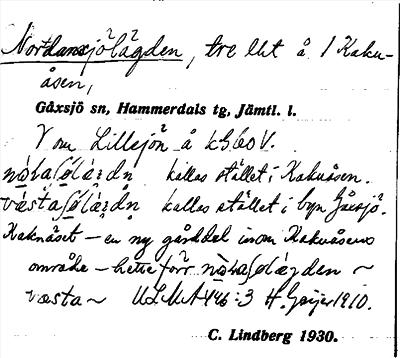 Nordansjölägden, tre lht å 1 Kaku-
åsen,
Gåxsjö sn, Hammerdals tg, Jämtl. l.
V om Lillsjön å kbl. 60 V.
kallas stället i Kakuåsen.
kallas stället i byn Gåxsjö.
Kaknäset – en ny gårddel inom Kakuåsens
område – hette förr ~
västa ~ ULMA 446:3 H. Geijer 1910.
C. Lindberg 1930.